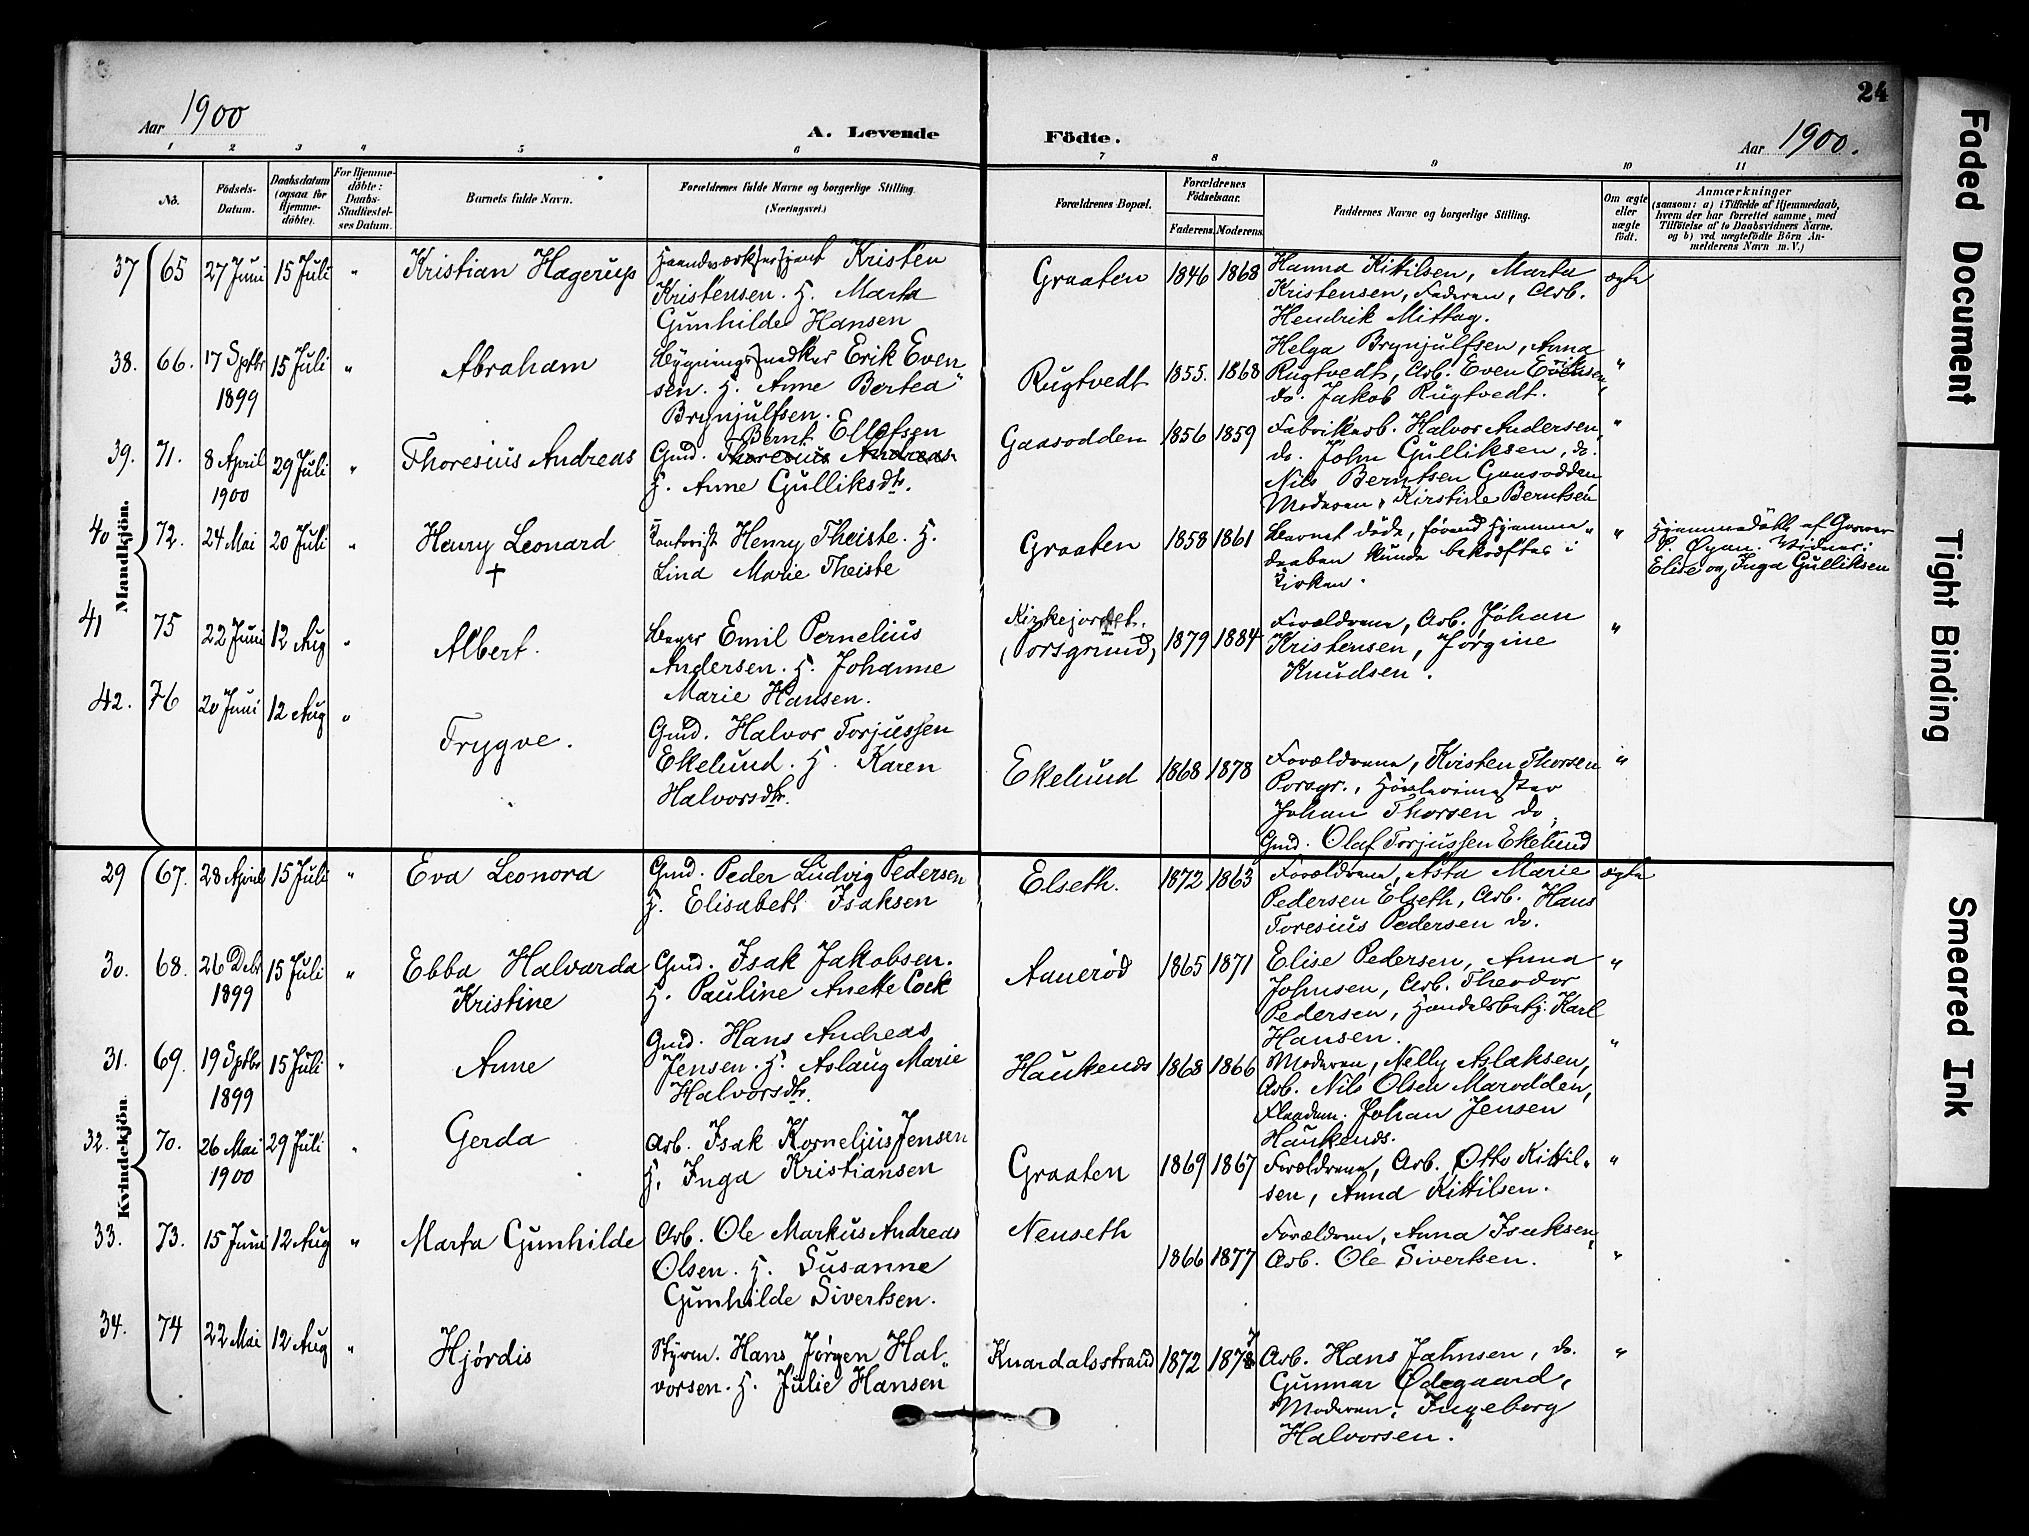 24
Aar 1900
A. Levende Födte.
Aar 1900.
1 2 3 4 5 6 7 8 9 10 11
No.
Födsels-Datum.
Daabsdatum (ogsaa for Hjemmedöbte).
For Hjemmedöbte: Daabs-Stadfæstelses Datum.
Barnets fulde Navn.
Forældrenes fulde Navne og borgerlige Stilling. (Næringsvei.)
Forældrenes Bopæl.
Forældrenes Födselsaar.
Faderens. Moderens.
Faddernes Navne og borgerlige Stilling.
Om ægte eller uægte födt.
Anmærkninger
(saasom: a) i Tilfælde af Hjemmedaab, hvem der har forrettet samme, med Tilföielse af to Daabsvidners Navne. og b) ved uægtefödte Börn Anmelderens Navn m. V.)
Mandkjön.
37 65 27 Juni 15 Juli " Kristian Hagerup
Kristen
Kristensen. H. Marta
Gunhilde Hansen
Graaten 1846 1868
Hanna Kittilsen, Marta
Kristensen, Faderen, Arb.
Hendrik Mittag.
ægte
38. 66. 17 Sptbr 1899 15 Juli " Abraham
Bygningssnedker Erik Even
sen. H. Anne Bertea
Brynjulfsen.
Rugtvedt 1855. 1868
Helga Brynjulfsen, Anna
Rugtvedt, Arb. Even Eriksen,
do. Jakob Rugtvedt.
"
39. 71. 8 April 1900 29 Juli " Thoresius Andreas
Bernt Ellefsen
Gmd. Thoresius Andreas
H. Anne Gulliksdtr.
Gaasodden 1856 1859
Fabrikarb. Halvor Andersen,
do. John Gulliksen, do.
Nils Berntsen Gaasodden
Moderen, Kirstine Berntsen
"
40 72. 24 Mai 20 Juli " Henry Leonard
†
Kontorist Henry Theiste. H.
Lina Marie Theiste
Graaten 1858 1861
Barnet döde, förend Hjemme
daaben kunde bekræftes i
Kirken.
"
Hjemmedöbt af Garver
P. Øyan. Vidner:
Elise og Inga Gulliksen
41 75 22 Juni 12 Aug " Albert.
Bager Emil Pernelius
Andersen. H. Johanne
Marie Hansen.
Kirkejordet.
(Porsgrund) 1879 1884
Forældrene, Arb. Johan
Kristensen, Jørgine
Knudsen.
"
42. 76 20 Juni 12 Aug " Trygve.
Gmd. Halvor Torjussen
Ekelund. H. Karen
Halvorsdtr.
Ekelund 1868 1878
Forældrene, Kristen Thorsen
Porsgr.,
Johan Thorsen do,
Gmd. Olaf Torjussen Ekelund
"
Kvindekjön
29 67. 28 April 15 Juli " Eva Leonora
Gmd. Peder Ludvig Pedersen
H. Elisabeth Isaksen
Elseth. 1872 1863
Forældrene, Asta Marie
Pedersen Elseth, Arb. Hans
Toresius Pedersen do.
ægte
30. 68. 26 Debr 1899 15 Juli " Ebba Halvarda
Kristine
Gmd. Isak Jakobsen.
H. Pauline Anette Cock
Aanerød 1865 1871
Elise Pedersen, Anna
Johnsen, Arb. Theodor
Pedersen, Handelsbetj. Karl
Hansen.
"
31. 69. 19 Sptbr 1899 15 Juli " Anne
Gmd. Hans Andreas
Jensen. H. Aslaug Marie
Halvorsdtr.
Haukenes 1868 1866
Moderen, Nelly Aslaksen,
Arb. Nils Olsen Marodden,
Johan Jensen
Haukenes.
"
32. 70. 26 Mai 1900 29 Juli " Gerda
Arb. Isak Kornelius Jensen
H. Inga Kristiansen
Graaten 1869 1867
Forældrene, Arb. Otto Kittil-
sen, Anna Kittilsen.
"
33. 73. 15 Juni 12 Aug " Marta Gunhilde
Arb. Ole Markus Andreas
Olsen. H. Susanne
Gunhilde Sivertsen.
Nenseth 1866 1877
Forældrene, Anna Isaksen,
Arb. Ole Sivertsen.
"
34. 74 22 Mai 12 Aug " Hjørdis
Styrm. Hans Jørgen Hal
vorsen. H. Julie Hansen
Knardalsstrand 1872 1878
Arb. Hans Jahnsen, do.
Gunnar Ødegaard,
Moderen, Ingeborg
Halvorsen.
"
Faded Document
Tight Binding
Smeared Ink